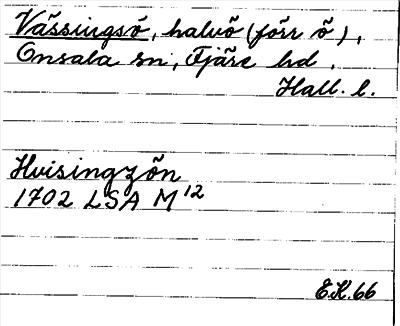 Vässingsö, halvö (förr ö),
Onsala sn, Fjäre hd.
Hall. l.
Hvisingzön
1702 LSA M 12
E.K. 66